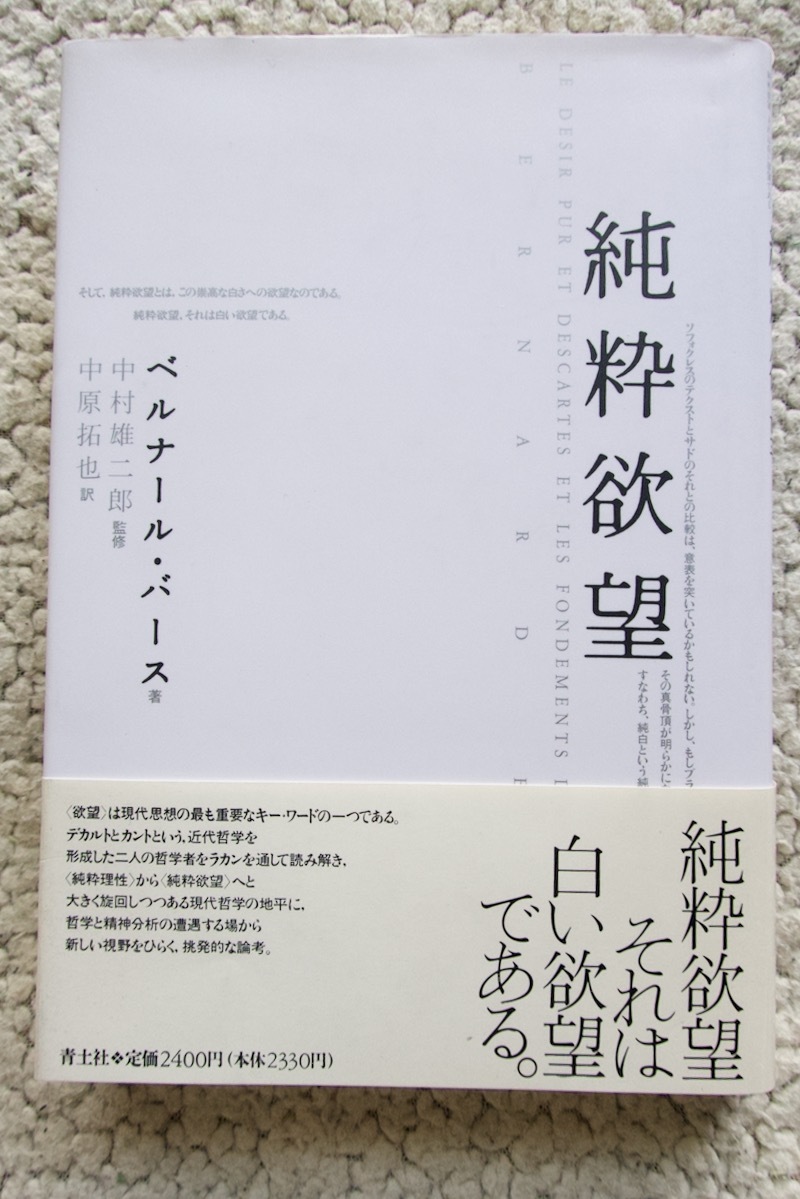 純粋欲望
ソフォクレスのテクストとサドのそれとの比較は、意表を突いているかもしれない。しかし、もしプラ
その真骨頂が明らかに
すなわち、純白という純
LE DESIR PUR ET DESCARTES ET LES FONDEMENTS D
BERNARD
そして、純粋欲望とは、この崇高な白さへの欲望なのである。
純粋欲望、それは白い欲望である。
ベルナール・バース 著
中村雄二郎 監修
中原拓也 訳
〈欲望〉は現代思想の最も重要なキー・ワードの一つである。
デカルトとカントという、近代哲学を
形成した二人の哲学者をラカンを通して読み解き、
〈純粋理性〉から〈純粋欲望〉へと
大きく旋回しつつある現代哲学の地平に、
哲学と精神分析の遭遇する場から
新しい視野をひらく、挑発的な論考。
純粋欲望
それは
白い欲望
である。
青土社❖定価2400円(本体2330円)